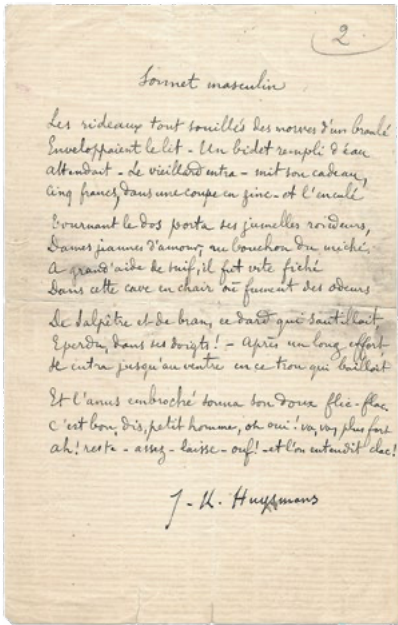 2
Sonnet masculin
Les rideaux tout souillés des morves d'un branlé
Enveloppaient le lit - Un bidet rempli d'eau
attendait - Le vieillard entra - mit son cadeau,
Cinq francs, dans une coupe en zinc - et l'enculé
Tournant le dos porta ses jumelles roideurs,
Dames jeannes d'amour, au bouchon du miché.
A grand'aide de suif, il fut vite fiché
Dans cette cave en chair où fument des odeurs
De salpêtre et de bran, ce dard qui sautillait
Eperdu, dans ses doigts! - Après un long effort
Il entra jusqu'au ventre en ce trou qui baillait
Et l'anus embroché sonna son doux flic-flac
C'est bon, dis, petit homme, oh oui! va, va, plus fort
ah! reste - assez - laisse - ouf! - et l'on entendit clac!
J-K. Huysmans